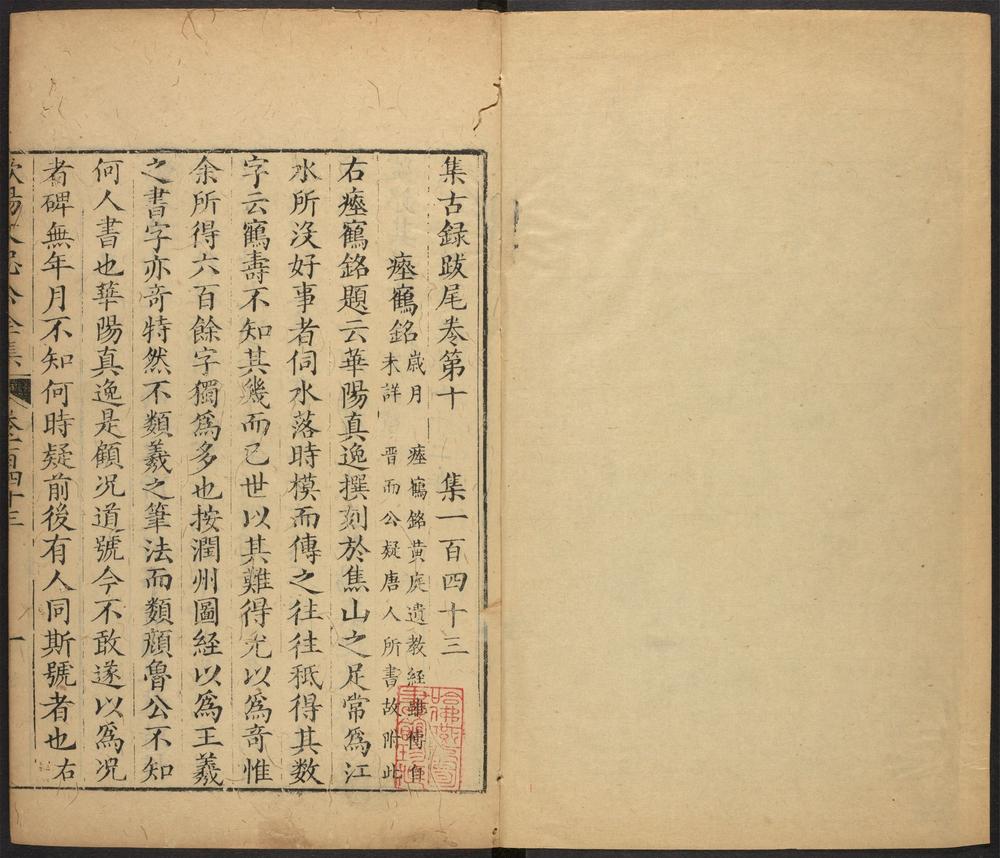 集古録跋尾卷第十　集一百四十三
瘞鶴銘
歲月
未詳
瘞鶴銘黃庭遺教經雖傳自
晋而公疑唐人所書故附此
右瘞鶴銘題云華陽真逸撰刻於焦山之足常爲江
水所沒好事者伺水落時模而傳之往往秪得其数
字云鶴壽不知其幾而已世以其難得尤以爲奇惟
余所得六百餘字獨爲多也按潤州圖経以爲王羲
之書字亦奇特然不類羲之筆法而類顔魯公不知
何人書也華陽真逸是顧况道號今不敢遂以爲况
者碑無年月不知何時疑前後有人同斯號者也右
歐陽文忠公全集　卷一百四十三　一